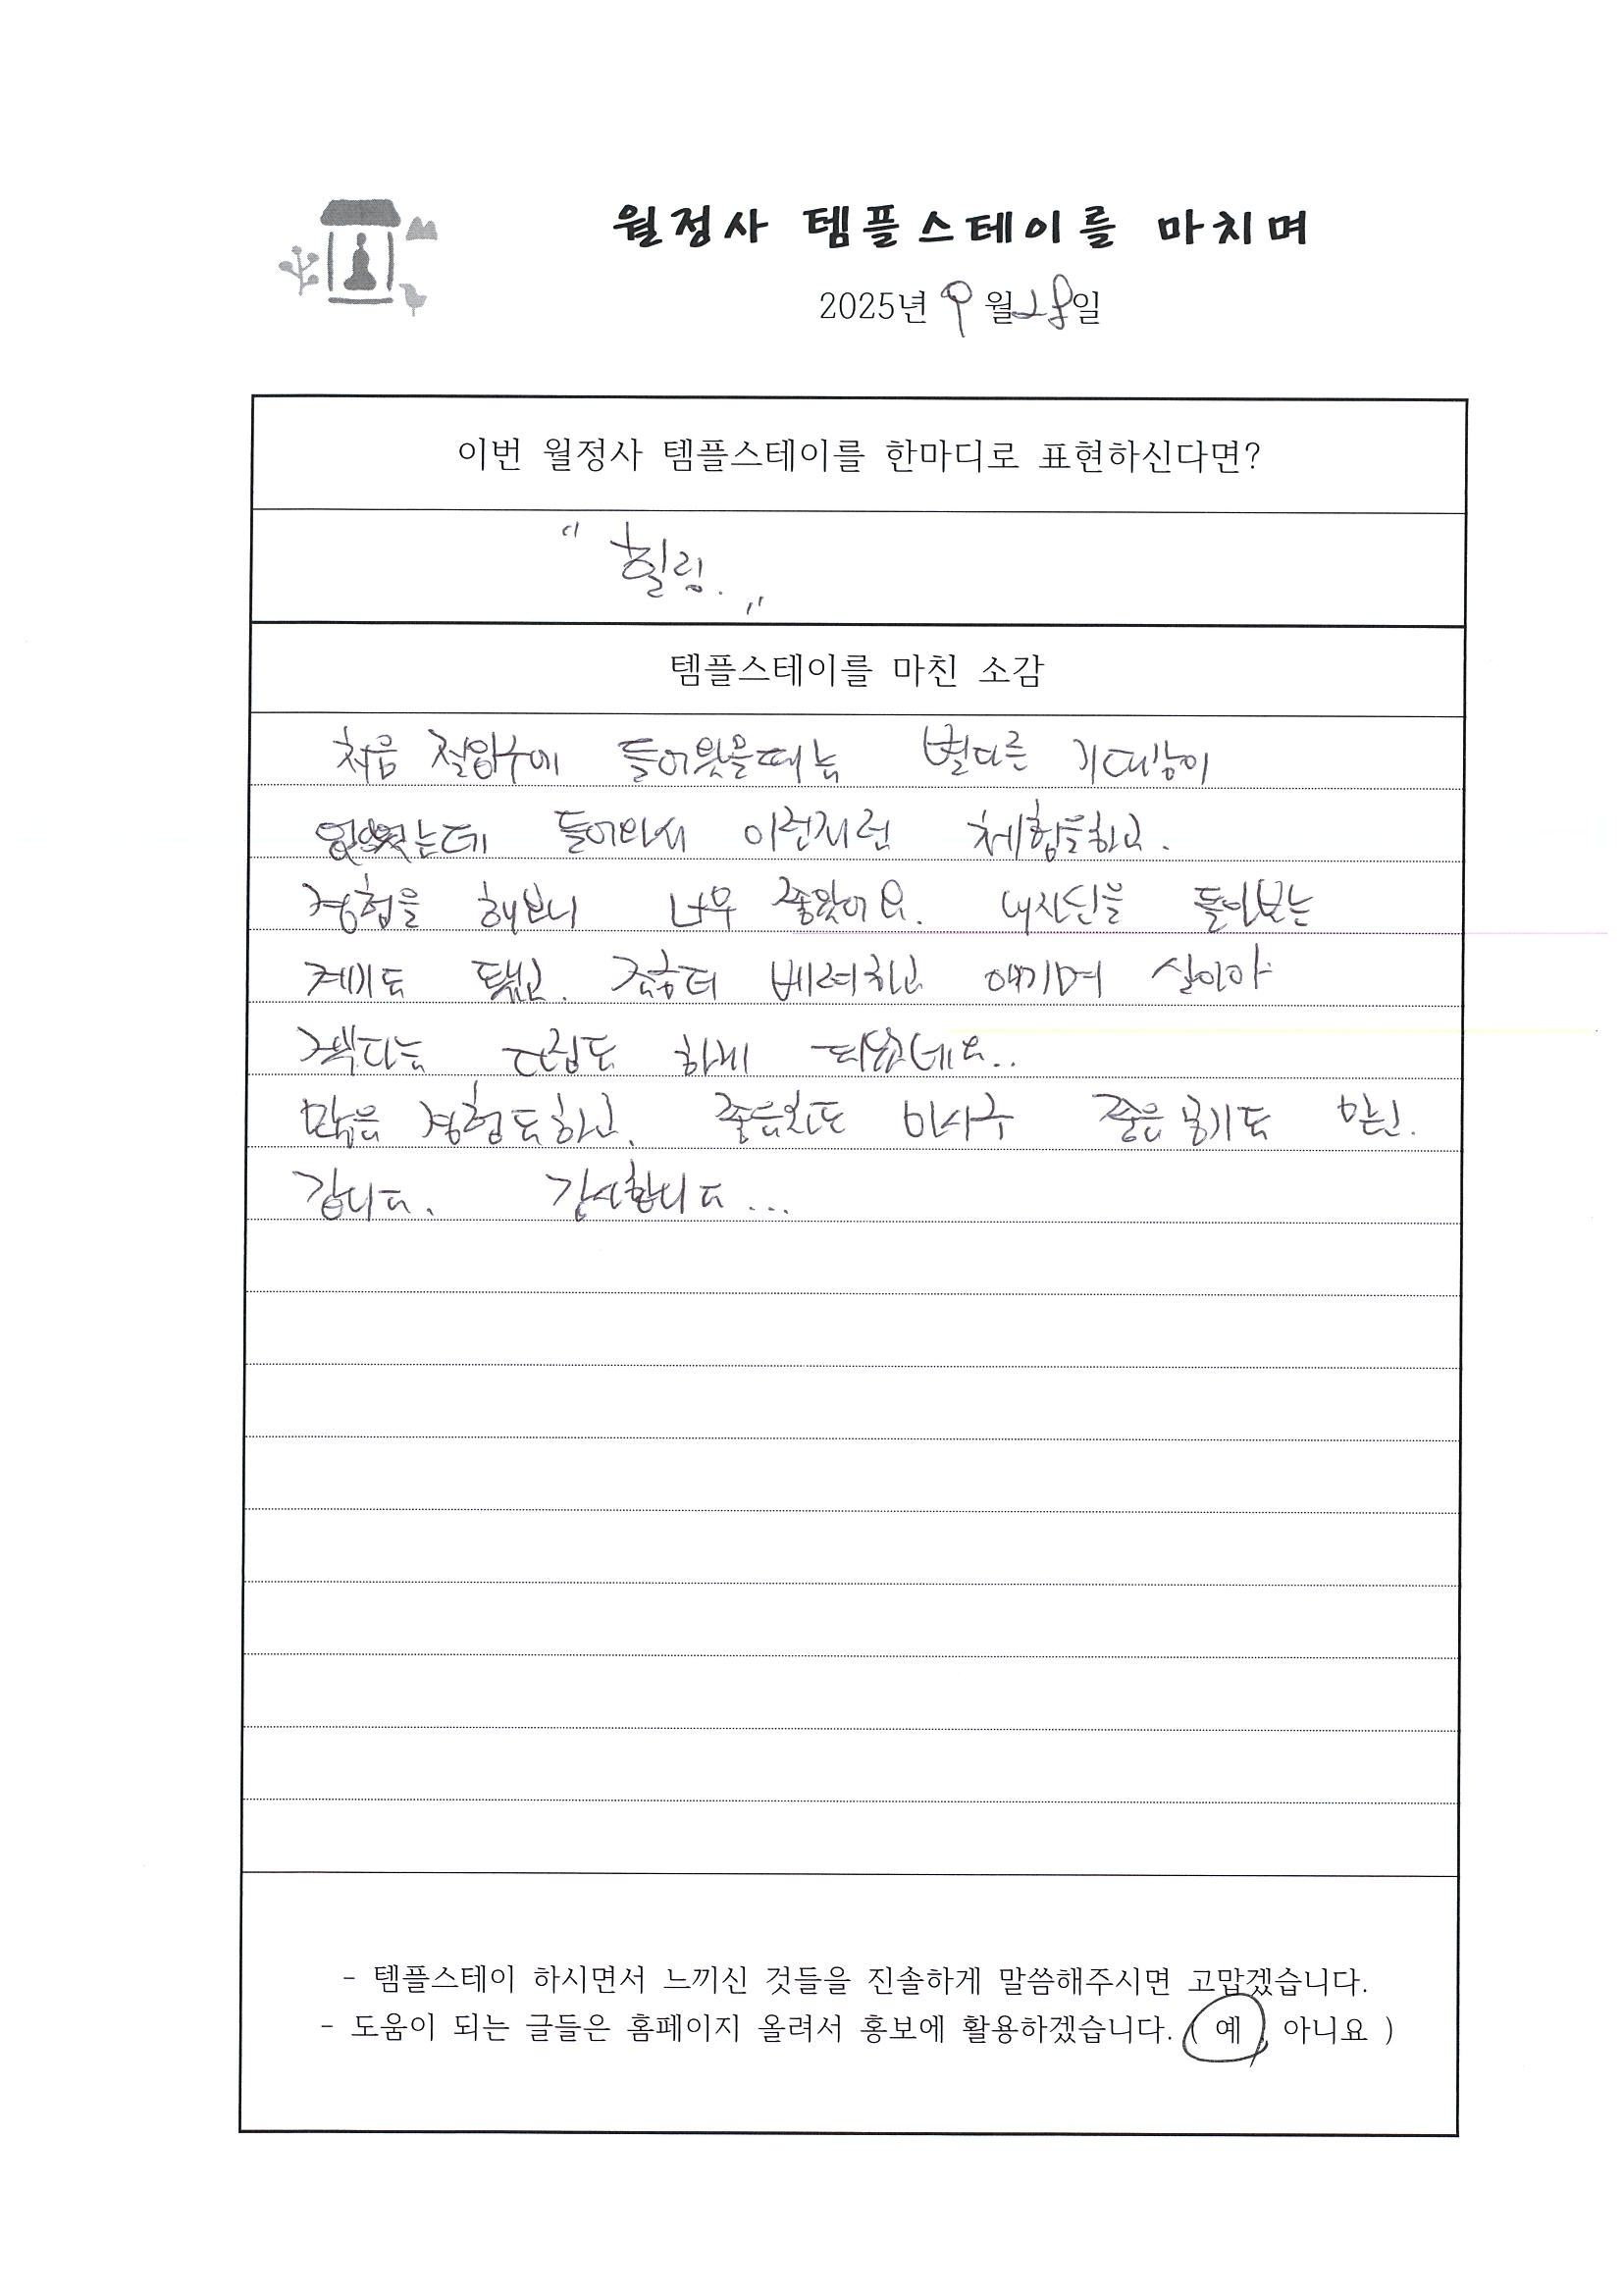 월정사 템플스테이를 마치며
2025년 9월 28일
이번 월정사 템플스테이를 한마디로 표현하신다면?
"힐링."
템플스테이를 마친 소감
처음 절입구에 들어왔을때는 별다른 기대감이
없었는데 들어와서 이런저런 체험을하고.
경험을 해보니 너무 좋았어요. 내자신을 돌아보는
계기도 됐고. 좀더 베려하고 애기며 살아야
겠다는 다짐도 하게 되었네요..
많은 경험도하고. 좋은차도 마시구 좋은공기도 맞고.
갑니다. 감사합니다...
- 템플스테이 하시면서 느끼신 것들을 진솔하게 말씀해주시면 고맙겠습니다.
- 도움이 되는 글들은 홈페이지 올려서 홍보에 활용하겠습니다. ( 예 , 아니요 )